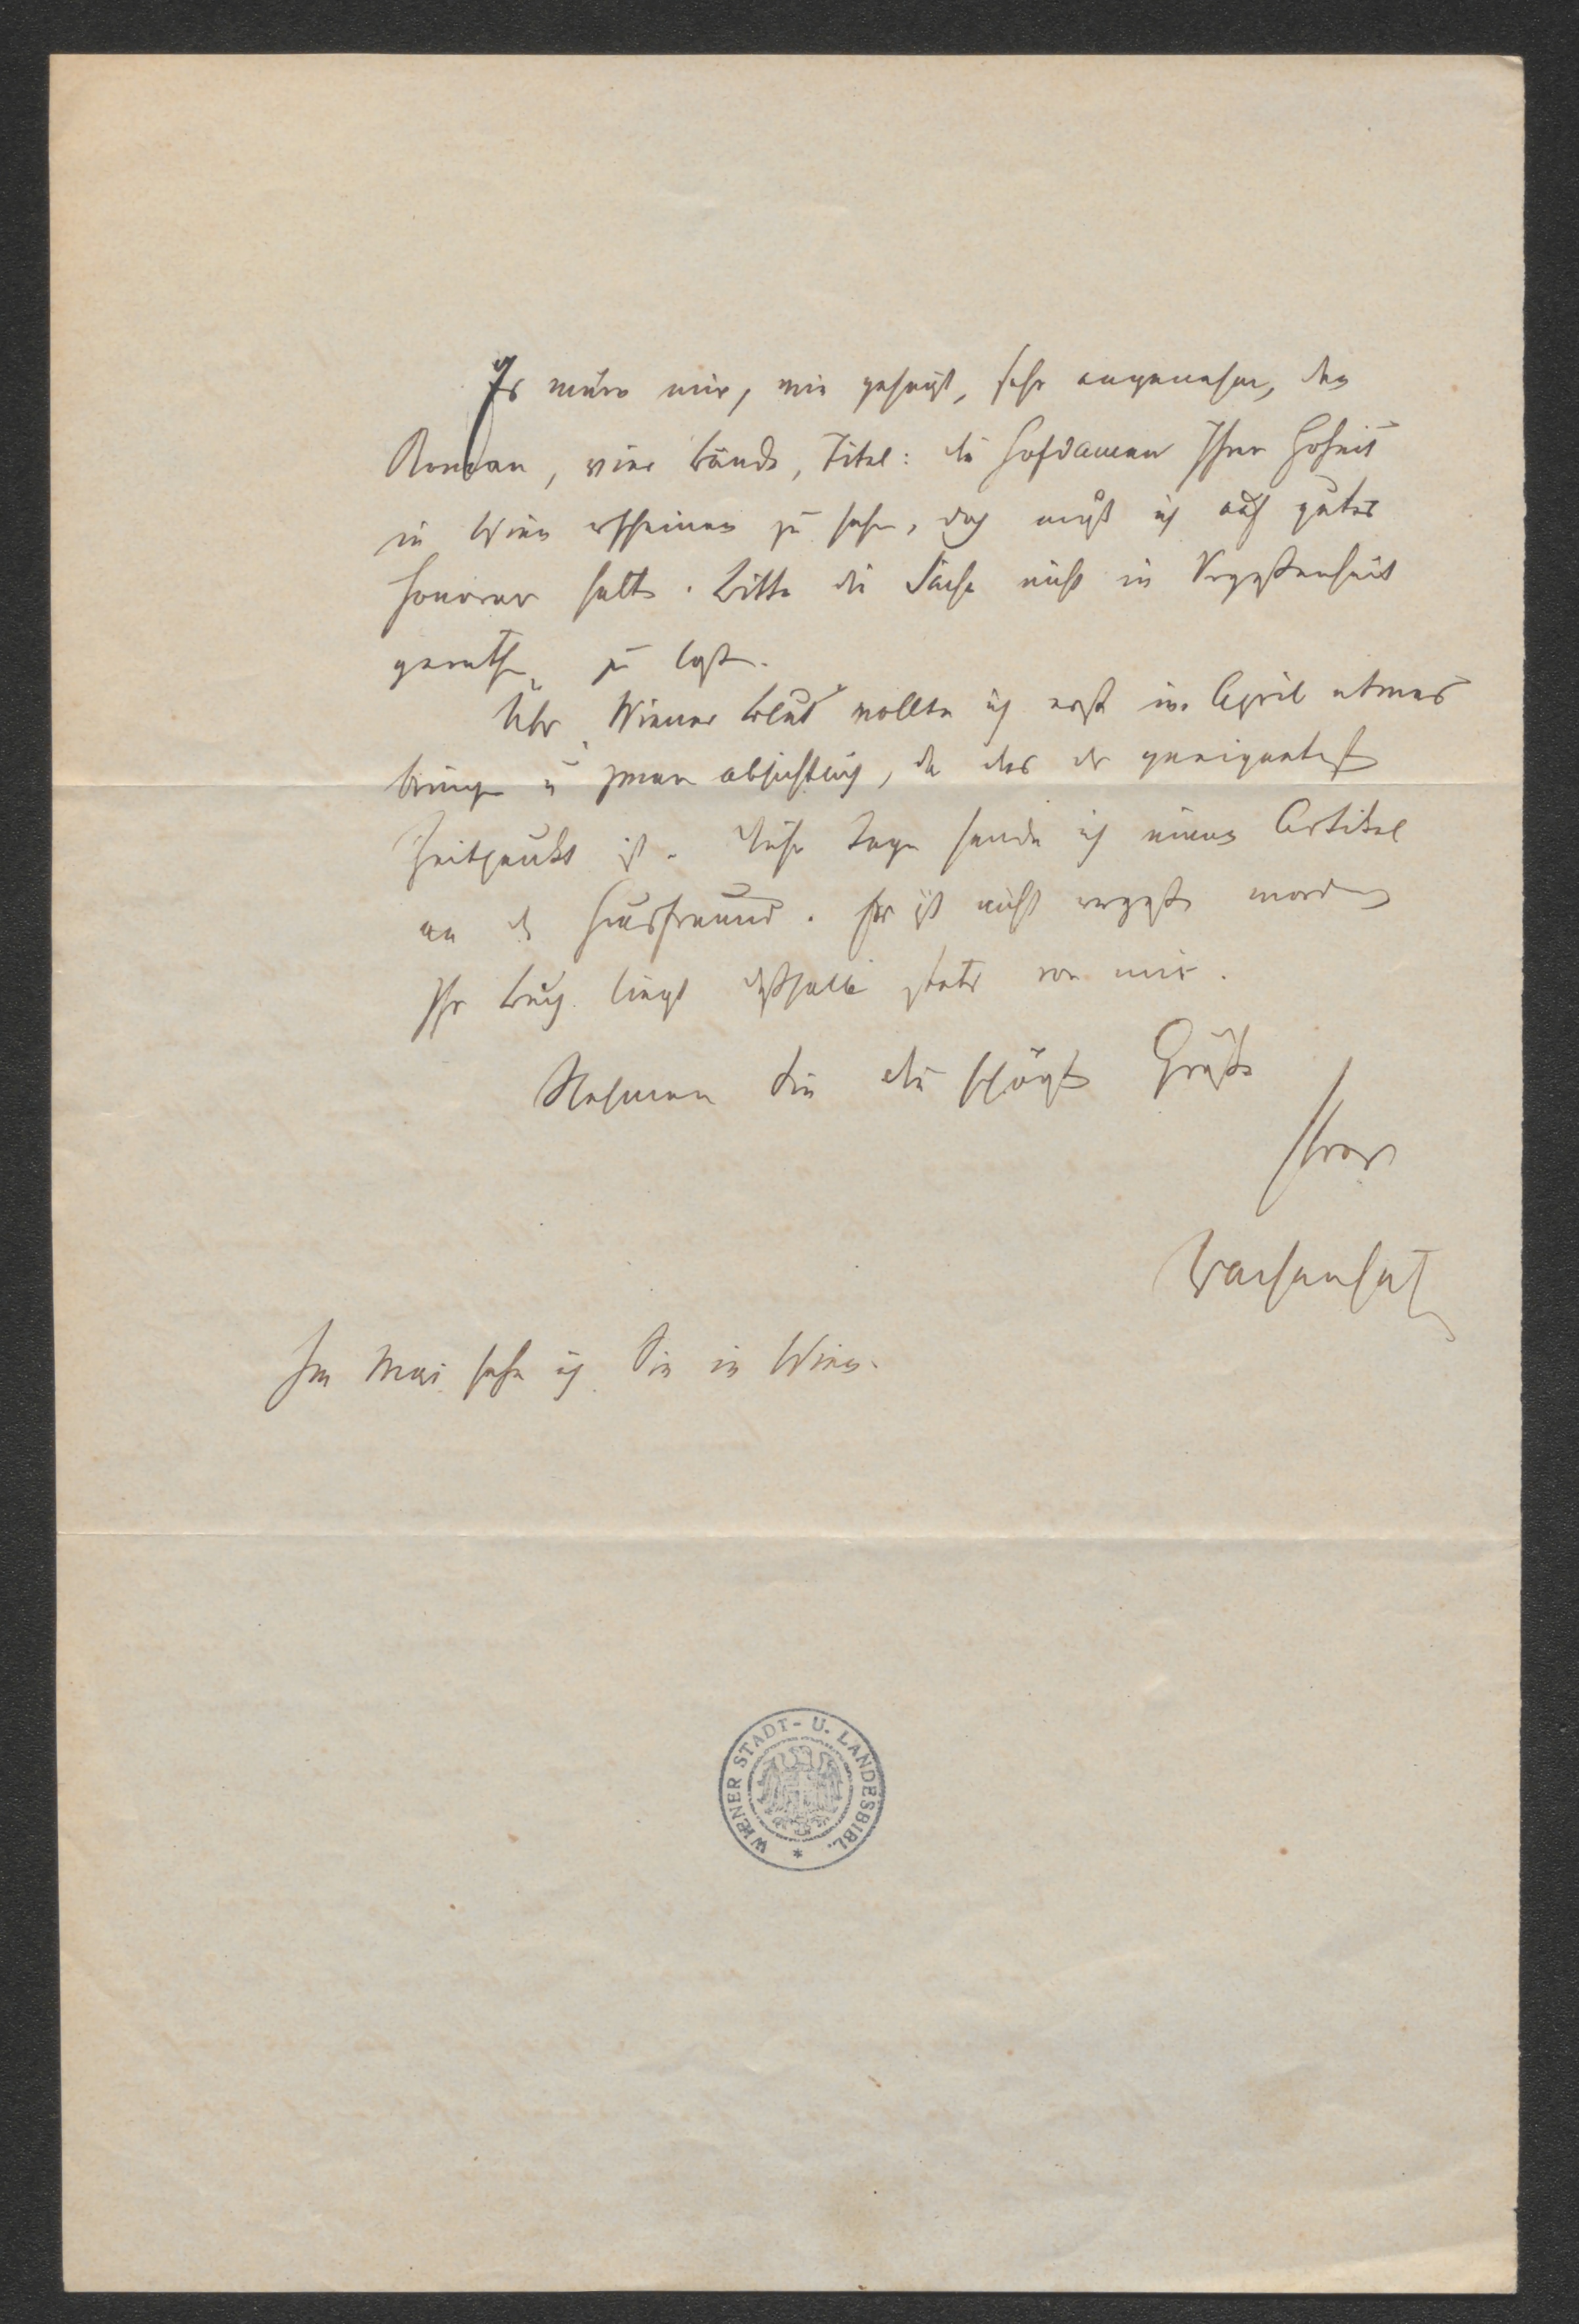 Es wäre mir, wie gesagt, sehr angenehm, den
Roman, vier Bände, Titel: die Hofdamen Ihrer Hoheit
in Wien erscheinen zu sehen, doch muß ich auf gutes
Honorar halten. Bitte die Sache nicht in Vergessenheit
gerathen zu lassen.
Über „Wiener Blut“ wollte ich erst im April etwas
bringen u zwar absichtlich, da das der geeigneteste
Zeitpunkt ist. Diese Tage sende ich einen Artikel
an den Hausfreund. Er ist nicht vergessen worden
Ihr Buch liegt deßhalb stets vor mir.
Nehmen Sie die schönsten Grüße
Ihres
Wachenhusen
Im Mai sehe ich Sie in Wien.
WIENER STADT- U. LANDESBIBL. *